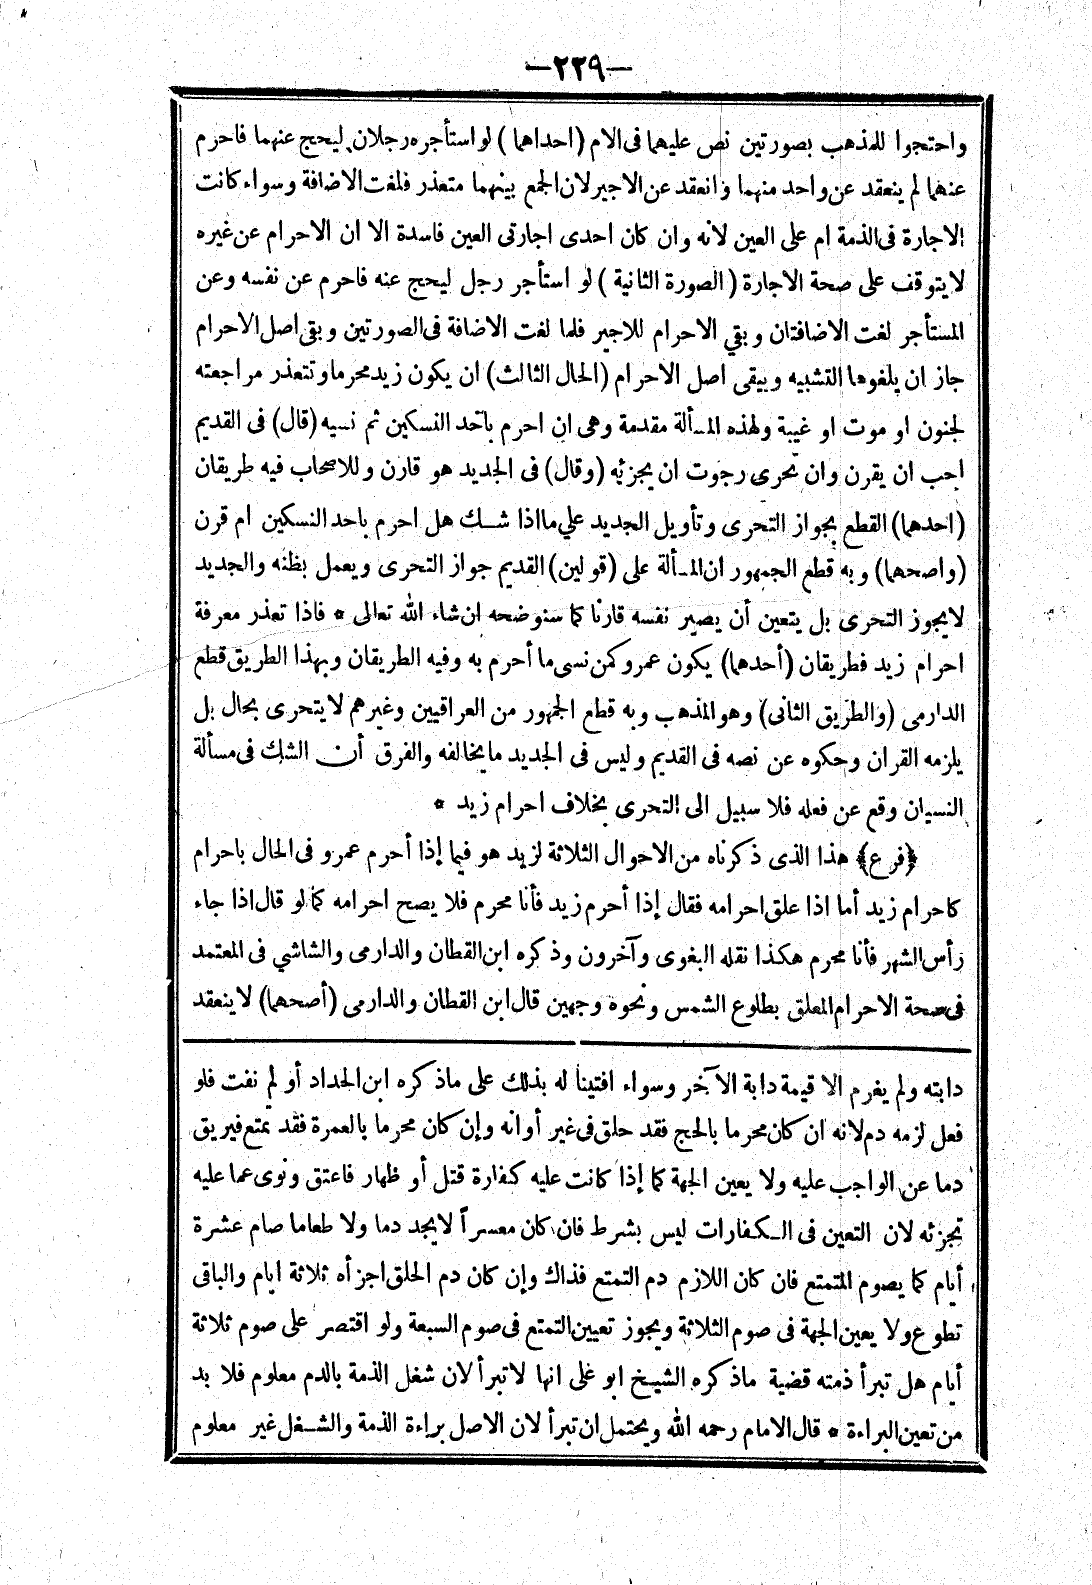 —٢٢٩—
واحتجوا للمذهب بصورتين نص عليهما فى الام (احداهما) لو استأجره رجلان ليحج عنهما فاحرم
عنهما لم ينعقد عن واحد منهما وانعقد عن الاجير لان الجمع بينهما متعذر فلغت الاضافة وسواء كانت
الاجارة فى الذمة ام على العين لانه وان كان احدى اجارتى العين فاسدة الا ان الاحرام عن غيره
لا يتوقف على صحة الاجارة (الصورة الثانية) لو استأجر رجل ليحج عنه فاحرم عن نفسه وعن
المستأجر لغت الاضافتان وبقي الاحرام للاجير فلما لغت الاضافة فى الصورتين وبقى اصل الاحرام
جاز ان يلغو هنا التشبيه ويبقى اصل الاحرام (الحال الثالث) ان يكون زيد محرما وتتعذر مراجعته
لجنون او موت او غيبة ولهذه المسألة مقدمة وهى ان احرم باحد النسكين ثم نسيه (قال) فى القديم
احب ان يقرن وان تحرى رجوت ان يجزئه (وقال) فى الجديد هو قارن وللاصحاب فيه طريقان
(احدهما) القطع بجواز التحرى وتأويل الجديد علي ما اذا شك هل احرم باحد النسكين ام قرن
(واصحها) وبه قطع الجمهور ان المسألة على (قولين) القديم جواز التحرى ويعمل بظنه والجديد
لا يجوز التحرى بل يتعين أن يصير نفسه قارنا كما سنوضحه ان شاء الله تعالى * فاذا تعذر معرفة
احرام زيد فطريقان (أحدهما) يكون عمرو كمن نسى ما أحرم به وفيه الطريقان وبهذا الطريق قطع
الدارمى (والطريق الثانى) وهو المذهب وبه قطع الجمهور من العراقيين وغيرهم لا يتحرى بحال بل
يلزمه القران وحكوه عن نصه فى القديم وليس فى الجديد ما يخالفه والفرق أن الشك فى مسألة
النسيان وقع عن فعله فلا سبيل الى التحرى بخلاف احرام زيد *
﴿فرع﴾ هذا الذى ذكرناه من الاحوال الثلاثة لزيد هو فيما إذا أحرم عمرو فى الحال باحرام
كاحرام زيد أما اذا علق احرامه فقال إذا أحرم زيد فأنا محرم فلا يصح احرامه كما لو قال اذا جاء
رأس الشهر فأنا محرم هكذا نقله البغوى وآخرون وذكره ابن القطان والدارمى والشاشي فى المعتمد
فى صحة الاحرام المعلق بطلوع الشمس ونحوه وجهين قال ابن القطان والدارمى (أصحها) لا ينعقد
دابته ولم يغرم الا قيمة دابة الآخر وسواء افتينا له بذلك على ما ذكره ابن الحداد أو لم نفت فلو
فعل لزمه دم لانه ان كان محرما بالحج فقد حلق فى غير أوانه وإن كان محرما بالعمرة فقد تمتع فيريق
دما عن الواجب عليه ولا يعين الجهة كما إذا كانت عليه كفارة قتل أو ظهار فاعتق ونوى عما عليه
تجزئه لان التعين فى الكفارات ليس بشرط فان كان معسراً لا يجد دما ولا طعاما صام عشرة
أيام كما يصوم المتمتع فان كان اللازم دم التمتع فذاك وإن كان دم الحلق اجزأه ثلاثة ايام والباقى
تطوع ولا يعين الجهة فى صوم الثلاثة ويجوز تعيين التمتع فى صوم السبعة ولو اقتصر على صوم ثلاثة
أيام هل تبرأ ذمته قضية ما ذكره الشيخ ابو على انها لا تبرأ لان شغل الذمة بالدم معلوم فلا بد
من تعين البراءة * قال الامام رحمه الله ويحتمل ان تبرأ لان الاصل براءة الذمة والشغل غير معلوم